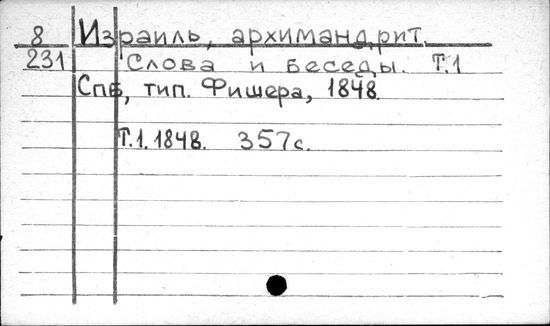 8 Израиль, архимандрит.
231 Слова и беседы. Т.1
Спб, тип. Фишера, 1848.
Т.1. 1848. 357с.